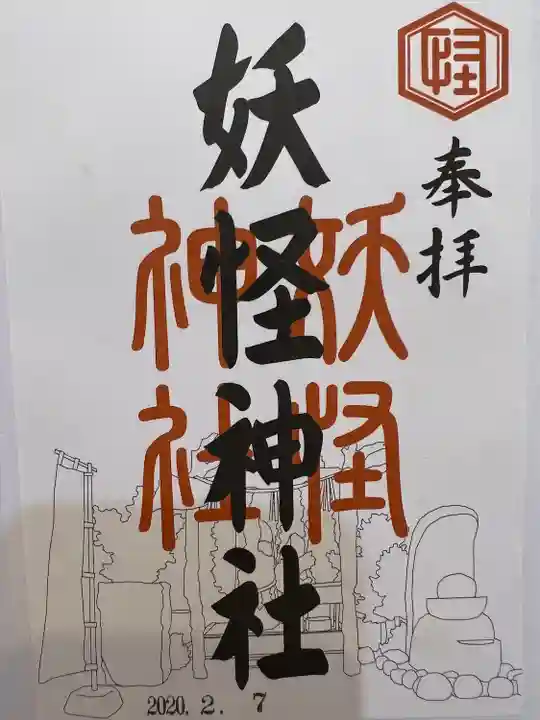 怪
奉拝
妖怪神社
妖怪
神社
2020. 2. 7